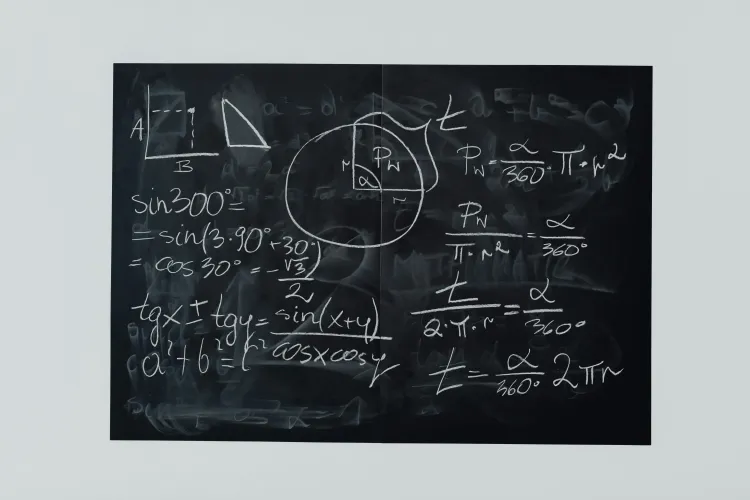 A
B
sin300°=
= sin(3·90°+30°)
= cos30° = -√3/2
tgx ± tgy = sin(x+y)/cosxcosy
a²+b²=c²
t
r
P_W
α
r
P_W = α/360 · π · r²
P_W/π·r² = α/360°
t/2·π·r = α/360°
t = α/360° 2πr